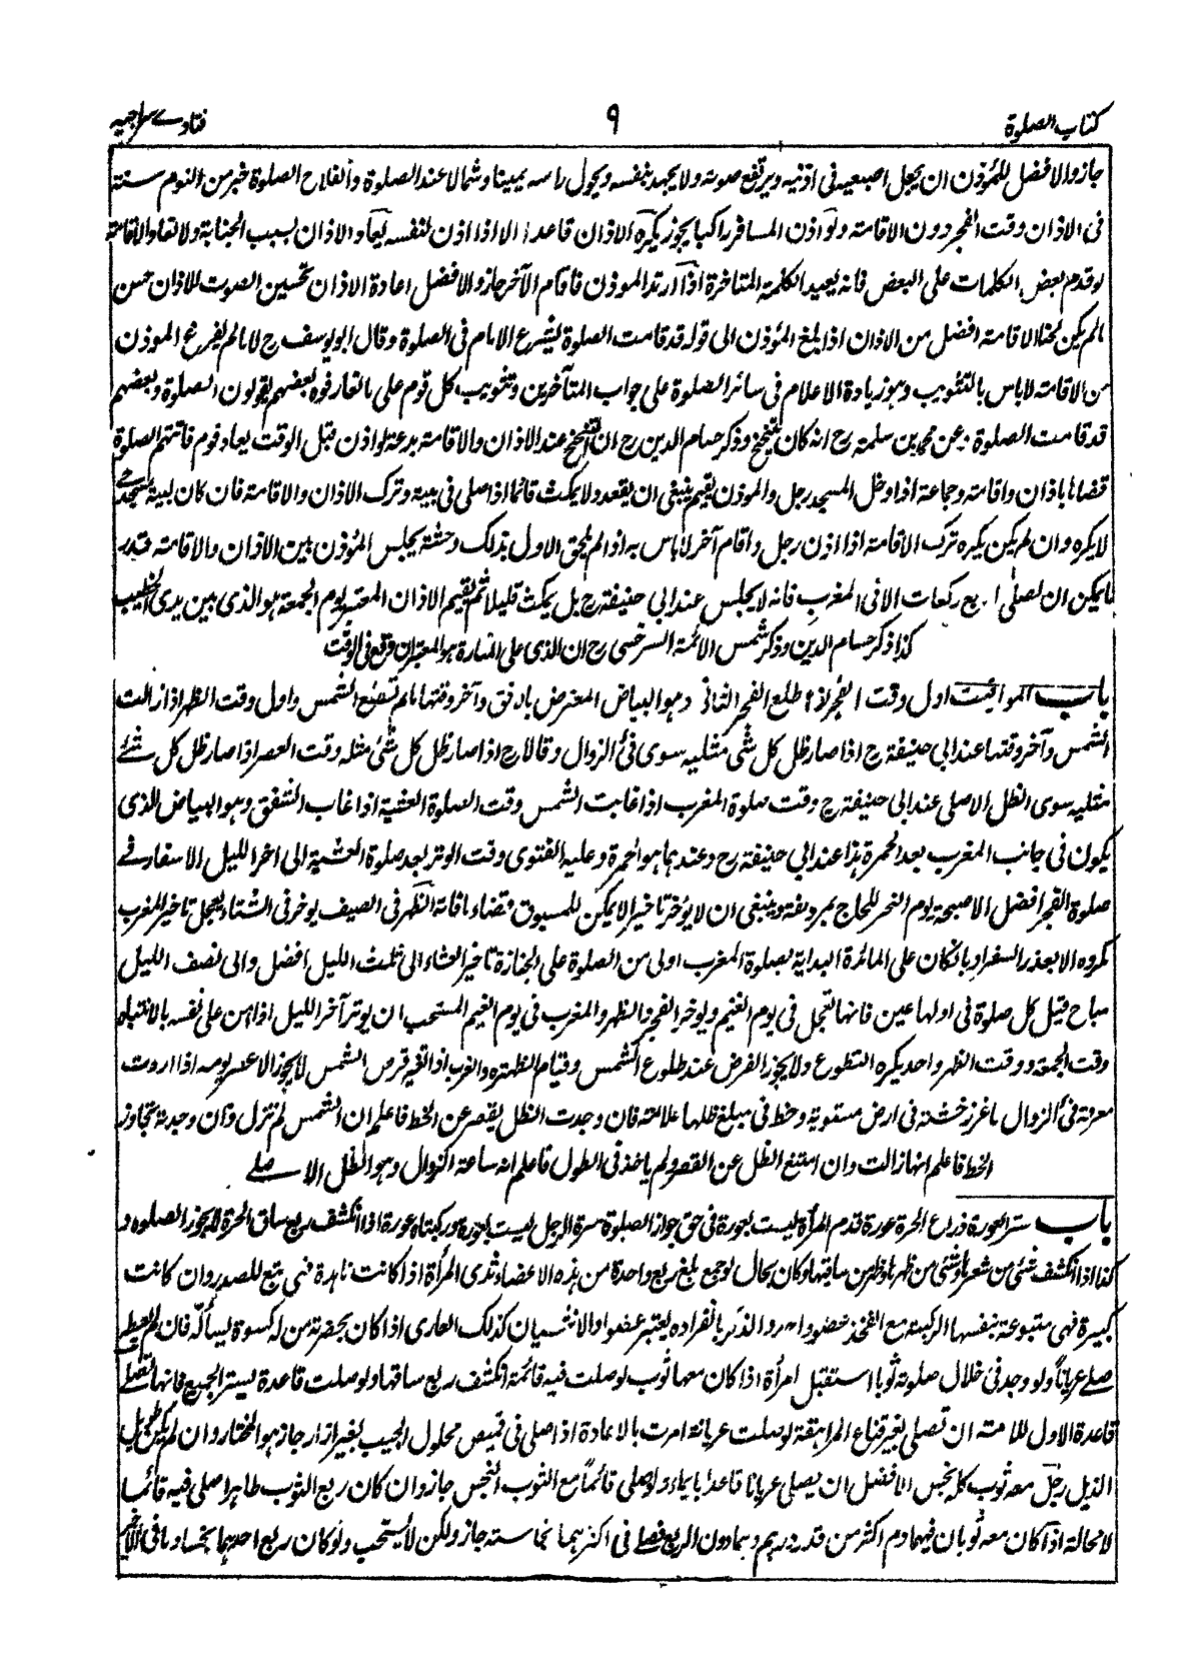 كتاب الصلوة
٩
فتاوے سراجيه
جاز والافضل للمؤذن ان يجعل اصبعيه فى اذنيه ويرتفع صوته ولا يجهد بنفسه ويحول راسه يمينا وشمالا عند الصلوة والفلاح الصلوة خير من النوم سنة
فى الاذان وقت الفجر دون الاقامته ولو اذن المسافر راكبا يجوز يكره الاذان قاعدا الا اذا اذن لنفسه يعاد الاذان بسبب الجنابة ولا تعاد الاقامته
لو قدم بعض الكلمات على البعض فانه يعيد الكلمة المتاخرة اذا ارتد الموذن فاقام الآخر جاز والافضل اعادة الاذان تحسين الصوت للاذان حسن
مالم يكن لحنا الاقامته افضل من الاذان اذا بلغ المؤذن الى قوله قد قامت الصلوة يشرع الامام فى الصلوة وقال ابو يوسف رح لا مالم يفرغ الموذن
من الاقامته لاباس بالتثويب وهو زيادة الاعلام فى سائر الصلوة على جواب المتأخرين وتثويب كل قوم على ما تعارفوه بعضهم يقولون الصلوة وبعضهم
قد قامت الصلوة . عن محمد بن سلمه رح انه كان يتنحنح وذكر حسام الدين رح ان التنحنح عند الاذان والاقامته بدعة لو اذن قبل الوقت يعاد قوم فاتتهم الصلوة
قضاها باذان واقامته وجماعة اذا دخل المسجد رجل والموذن يقيم ينبغى ان يقعد ولا يمكث قائما اذا صلى فى بيته وترك الاذان والاقامته فان كان لبيته مسجد حے
لا يكره وان لم يكن يكره ترك الاقامته اذا اذن رجل واقام آخر لاباس به اذا لم يلحق الاول بذلك وحشة يجلس المؤذن بين الاذان والاقامته قدر
ما يمكن ان يصلى اربع ركعات الا فى المغرب فانه لا يجلس عند ابى حنيفة رح بل يمكث قليلا ثم يقيم الاذان المعتبر يوم الجمعة هو الذى بين يدى الخطيب
كذا ذكر حسام الدين وذكر شمس الائمة السرخسى رح ان الذى على المنارة هو المعتبر ان وقع فى الوقت
باب المواقيت اول وقت الفجر اذا طلع الفجر الثانى وهو البياض المعترض بالافق وآخر وقتها مالم تطلع الشمس واول وقت الظهر اذا زالت
الشمس وآخر وقتها عند ابى حنيفة رح اذا صار ظل كل شئ مثليه سوى فئ الزوال وقالا رح اذا صار ظل كل شئ مثله وقت العصر اذا صار ظل كل شئے
مثليه سوى الظل الاصلى عند ابى حنيفة رح وقت صلوة المغرب اذا غابت الشمس وقت الصلوة العشية اذا غاب الشفق وهو البياض الذى
يكون فى جانب المغرب بعد الحمرة هذا عند ابى حنيفة رح وعندهما هو الحمرة وعليه الفتوى وقت الوتر بعد صلوة العشية الى اخر الليل الاسفار فے
صلوة الفجر افضل الا صبحة يوم النحر للحاج بمزدلفة وينبغى ان لا يؤخر تاخيرا لا يمكن للمسبوق قضاء ما فاته الظهر فى الصيف يوخر فى الشتاء يعجل تاخير المغرب
مكروه الا بعذر السفر او بان كان على المائدة البداية بصلوة المغرب اولى من الصلوة على الجنازة تاخير العشاء الى ثلث الليل افضل والى نصف الليل
مباح قيل كل صلوة فى اولها عين فانها تعجل فى يوم الغيم ويوخر الفجر والظهر والمغرب فى يوم الغيم المستحب ان يوتر آخر الليل اذا امن على نفسه بالانتباه
وقت الجمعة ووقت الظهر واحد يكره التطوع ولا يجوز الفرض عند طلوع الشمس وقيام الظهيرة والغرب اذا تغير قرص الشمس لا يجوز الا عصر يومه اذا اردت
معرفة فئ الزوال فاغرز خشبة فى ارض مستوية وخط فى مبلغ ظلها علامة فان وجدت الظل يقصر عن الخط فاعلم ان الشمس لم تزل وان وجدته تجاوز
الخط فاعلم انها زالت وان امتنع الظل عن القصر ولم ياخذ فى الطول فاعلم انه ساعة الزوال وهو الظل الاصلے
باب ستر العورة ذراع الحرة عورة قدم المرأة ليست بعورة فى حق جواز الصلوة سرة الرجل ليست بعورة وركبتاه عورة اذا انكشف ربع ساق الحرة لا يجوز الصلوه و
كذا اذا انكشف شئ من شعرها وشئ من ظهرها وشئ من ساقها وكان بحال لو جمع بلغ ربع واحدة من هذه الاعضاء ثدى المرأة اذا كانت ناهدة فهى تبع للصدر وان كانت
كبيرة فهى متبوعة بنفسها الركبة مع الفخذ عضو واحد والذكر بانفراده يعتبر عضوا والانثيان كذلك العارى اذا كان بحضرته من له كسوة يسأله فان لم يعطه
صلے عرياناً ولو وجد فى خلال صلوته ثوبا استقبل امرأة اذا كان معها ثوب لو صلت فيه قائمة انكشف ربع ساقها ولو صلت قاعدة ليستر الجميع فانها تصلے
قاعدة الاول للامته ان تصلى بغير قناع المراهقة لو صلت عريانة امرت بالاعادة اذا صلى فى قميص محلول الجيب بغير ازار جاز هو المختار وان لم يكن طويل
الذيل رجل معه ثوب كله نجس الافضل ان يصلى عريانا قاعدا بايماء ولو صلى قائماً مع الثوب النجس جاز وان كان ربع الثوب طاهرا صلى فيه قائما
لا محالة اذا كان معه ثوبان فيهما دم اكثر من قدر درهم وهما دون الربع فصلى فى اكثرهما نجاسته جاز ولكن لا يستحب ولو كان ربع احدهما نجسا وما فى الآخر